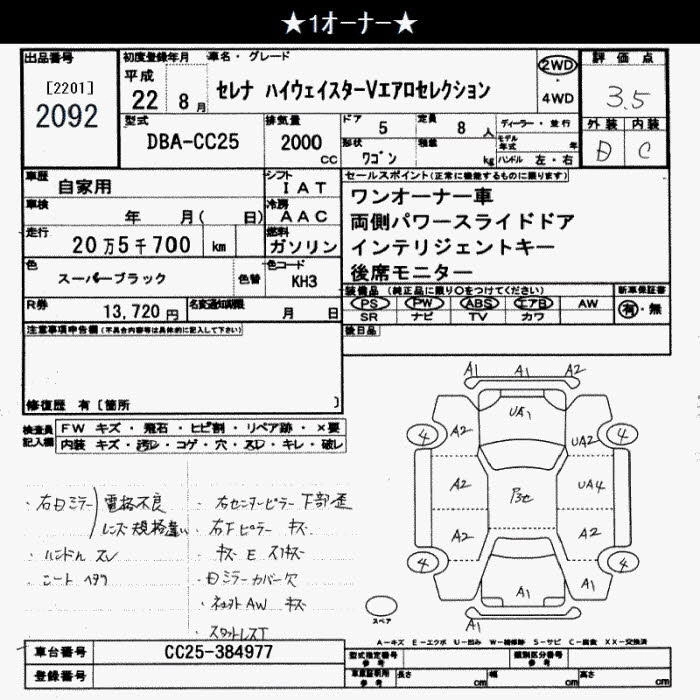 ★1オーナー★
出品番号
[2201]
2092
初度登録年月
平成
22 8月
車名・グレード
セレナ ハイウェイスターVエアロセレクション
2WD
・
4WD
評価点
3.5
外装 内装
D C
型式
DBA-CC25
排気量
2000
cc
ドア
5
定員
8 人
形状
ワゴン
積載
kg
ディーラー・並行
モデル年式 年
ハンドル 左・右
車歴
自家用
シフト
IAT
車検
年 月( 日)
冷房
AAC
走行
20万5千700 km
燃料
ガソリン
色
スーパーブラック
色替
色コード
KH3
R券
13,720 円
名変通知期限
月 日
セールスポイント(正常に機能するものに限ります)
ワンオーナー車
両側パワースライドドア
インテリジェントキー
後席モニター
装備品 (純正品に限り○をつけてください)
PS PW ABS エアB AW
SR ナビ TV カワ
新車保証書
有・無
後日品
注意事項申告欄 (不具合内容等は具体的に記入して下さい)
修復歴 有〔箇所 〕
検査員記入欄
FW キズ・飛石・ヒビ割・リペア跡・×要
内装 キズ・汚レ・コゲ・穴・スレ・キレ・破レ
・右日ミラー 電格不良
レンズ規格違い
・ハンドル スレ
・シート ヘタリ
・右センターピラー下部歪
・右Fピラー キズ
・キズ E スリキズ
・日ミラーカバー欠
・AW キズ
・スタットレスT
A1 A1 A2
UA1
4 A2 UA2 4
A2 UA4
A2 A2
4 4
A1 A1
A1
スペア
A-キズ E-エクボ U-凹み W-補修跡 S-サビ C-腐食 XX-交換済
車台番号
CC25-384977
登録番号
型式指定番号
参考
類別区分番号
参考
車庫証明用
参考
長さ cm 幅 cm 高さ cm